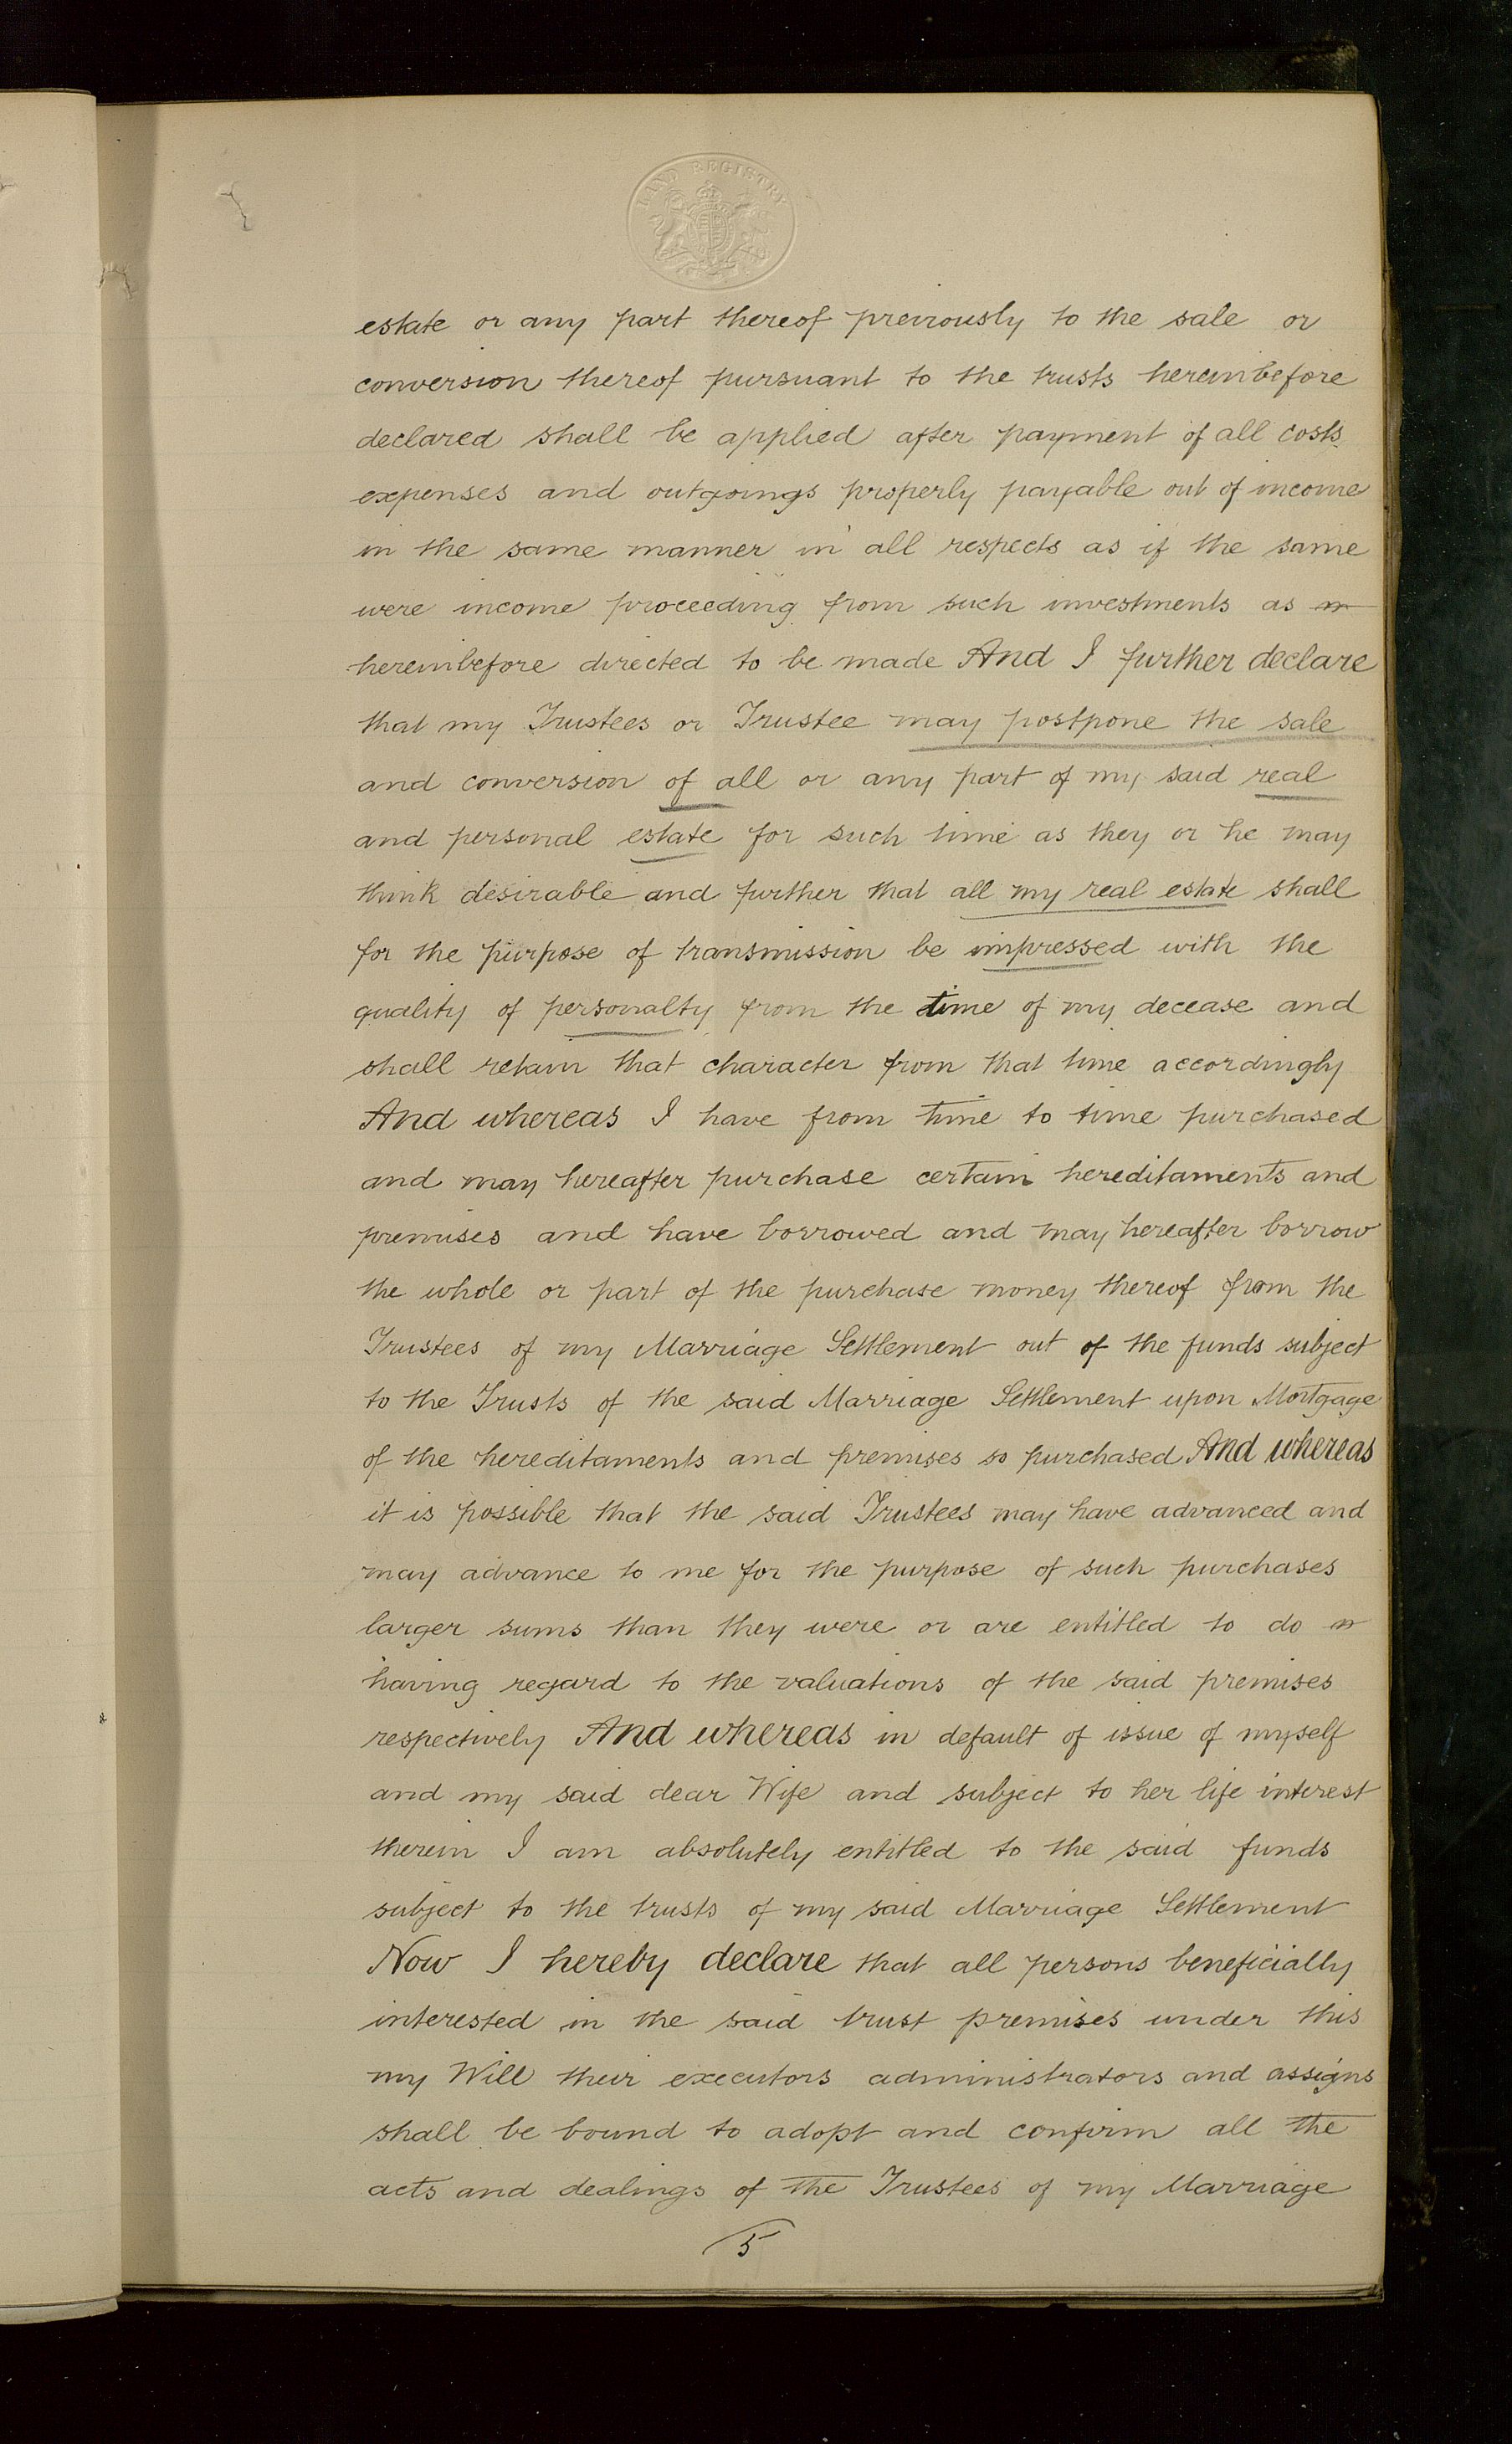 LAND REGISTRY
estate or any part thereof previously to the sale or
conversion thereof pursuant to the trusts hereinbefore
declared shall be applied after payment of all costs
expenses and outgoings properly payable out of income
in the same manner in all respects as if the same
were income proceeding from such investments as
hereinbefore directed to be made And I further declare
that my Trustees or Trustee may postpone the sale
and conversion of all or any part of my said real
and personal estate for such time as they or he may
think desirable and further that all my real estate shall
for the purpose of transmission be impressed with the
quality of personalty from the time of my decease and
shall retain that character from that time accordingly
And whereas I have from time to time purchased
and may hereafter purchase certain hereditaments and
premises and have borrowed and may hereafter borrow
the whole or part of the purchase money thereof from the
Trustees of my Marriage Settlement out of the funds subject
to the Trusts of the said Marriage Settlement upon Mortgage
of the hereditaments and premises so purchased And whereas
it is possible that the said Trustees may have advanced and
may advance to me for the purpose of such purchases
larger sums than they were or are entitled to do
having regard to the valuations of the said premises
respectively And whereas in default of issue of myself
and my said dear Wife and subject to her life interest
therein I am absolutely entitled to the said funds
subject to the trusts of my said Marriage Settlement
Now I hereby declare that all persons beneficially
interested in the said trust premises under this
my Will their executors administrators and assigns
shall be bound to adopt and confirm all the
acts and dealings of the Trustees of my Marriage
5